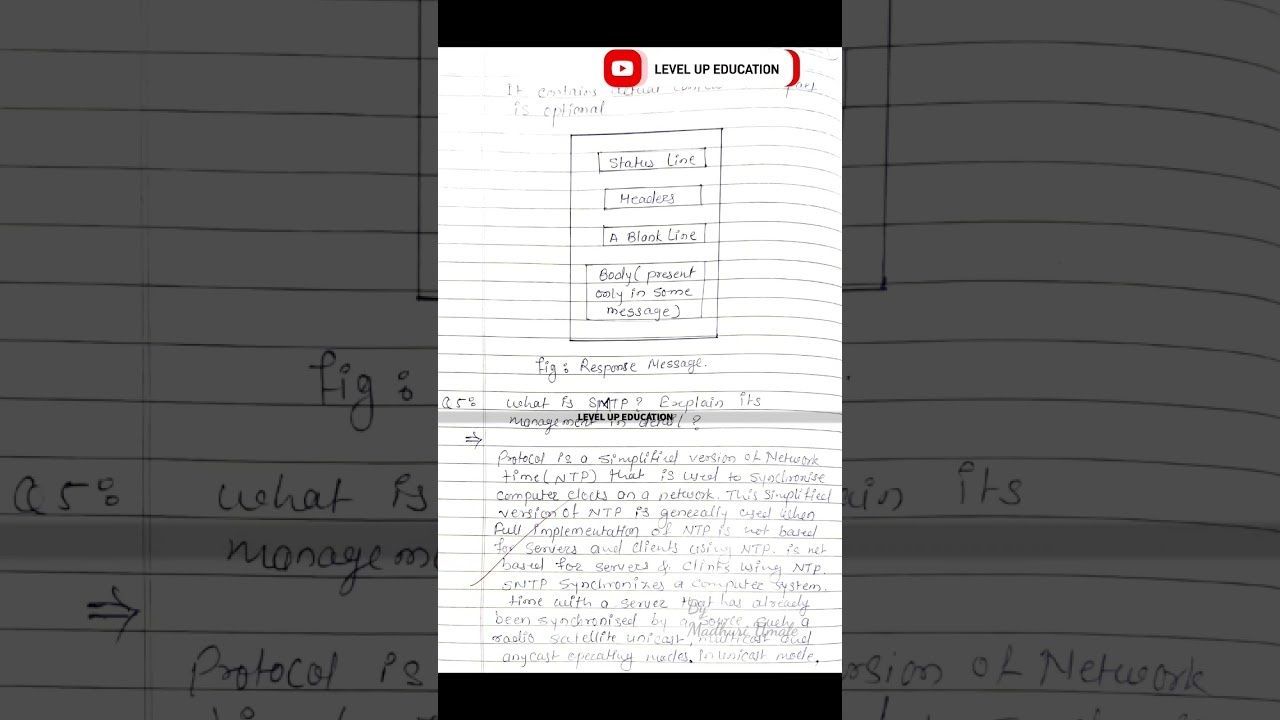 LEVEL UP EDUCATION
It contains actual part
is optional
Status Line
Headers
A Blank Line
Body (present
only in some
message)
fig: Response Message.
Q5: What is SNTP? Explain its
LEVEL UP EDUCATION
management in detail?
⇒
Protocol is a simplified version of Network
time (NTP) that is used to synchronise
computer clocks on a network. This simplified
version of NTP is generally used when
full implementation of NTP is not based
for servers and clients using NTP. is not
based for servers & clints using NTP.
SNTP Synchronizes a computer system.
time with a server that has already
been synchronised by a source such a
By
radio satellite unicast, multicast and
Madhuri Umate
anycast operating modes. In unicast mode,
fig:
Q5: what is
ain its
managem
⇒
Protocol is
rsion of Network